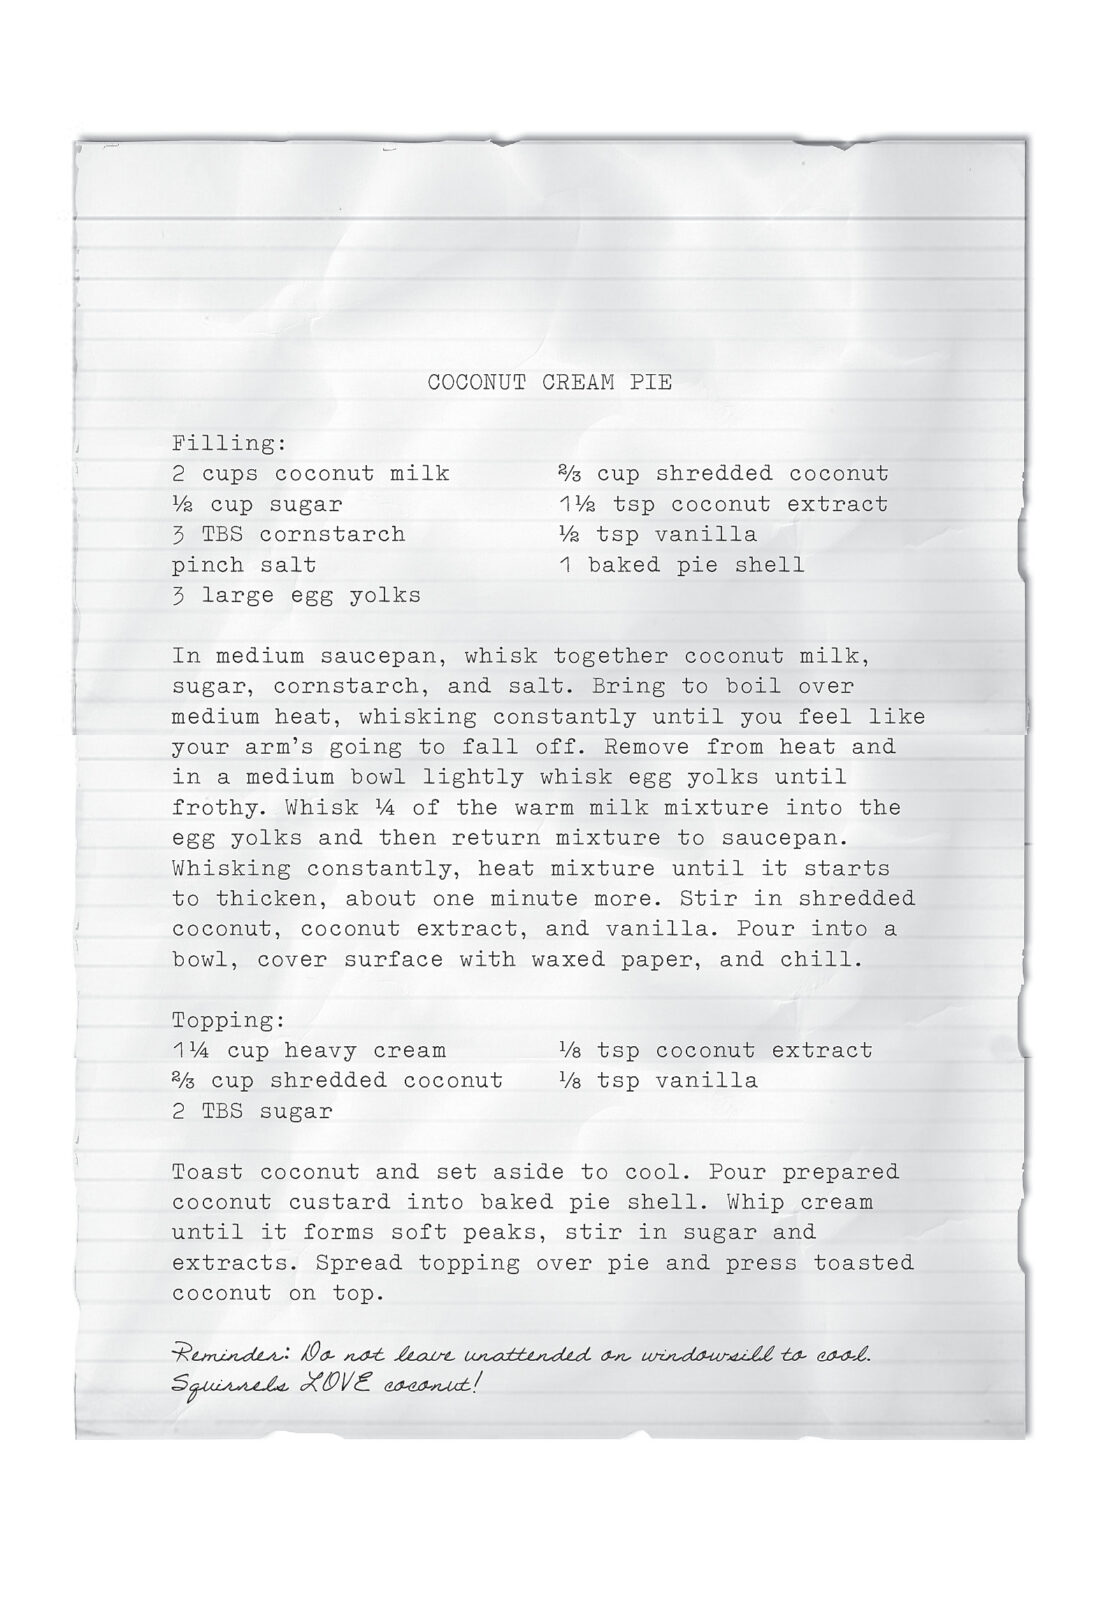 COCONUT CREAM PIE
Filling:
2 cups coconut milk
½ cup sugar
3 TBS cornstarch
pinch salt
3 large egg yolks
⅔ cup shredded coconut
1½ tsp coconut extract
½ tsp vanilla
1 baked pie shell
In medium saucepan, whisk together coconut milk,
sugar, cornstarch, and salt. Bring to boil over
medium heat, whisking constantly until you feel like
your arm’s going to fall off. Remove from heat and
in a medium bowl lightly whisk egg yolks until
frothy. Whisk ¼ of the warm milk mixture into the
egg yolks and then return mixture to saucepan.
Whisking constantly, heat mixture until it starts
to thicken, about one minute more. Stir in shredded
coconut, coconut extract, and vanilla. Pour into a
bowl, cover surface with waxed paper, and chill.
Topping:
1¼ cup heavy cream
⅔ cup shredded coconut
2 TBS sugar
⅛ tsp coconut extract
⅛ tsp vanilla
Toast coconut and set aside to cool. Pour prepared
coconut custard into baked pie shell. Whip cream
until it forms soft peaks, stir in sugar and
extracts. Spread topping over pie and press toasted
coconut on top.
Reminder: Do not leave unattended on windowsill to cool.
Squirrels LOVE coconut!